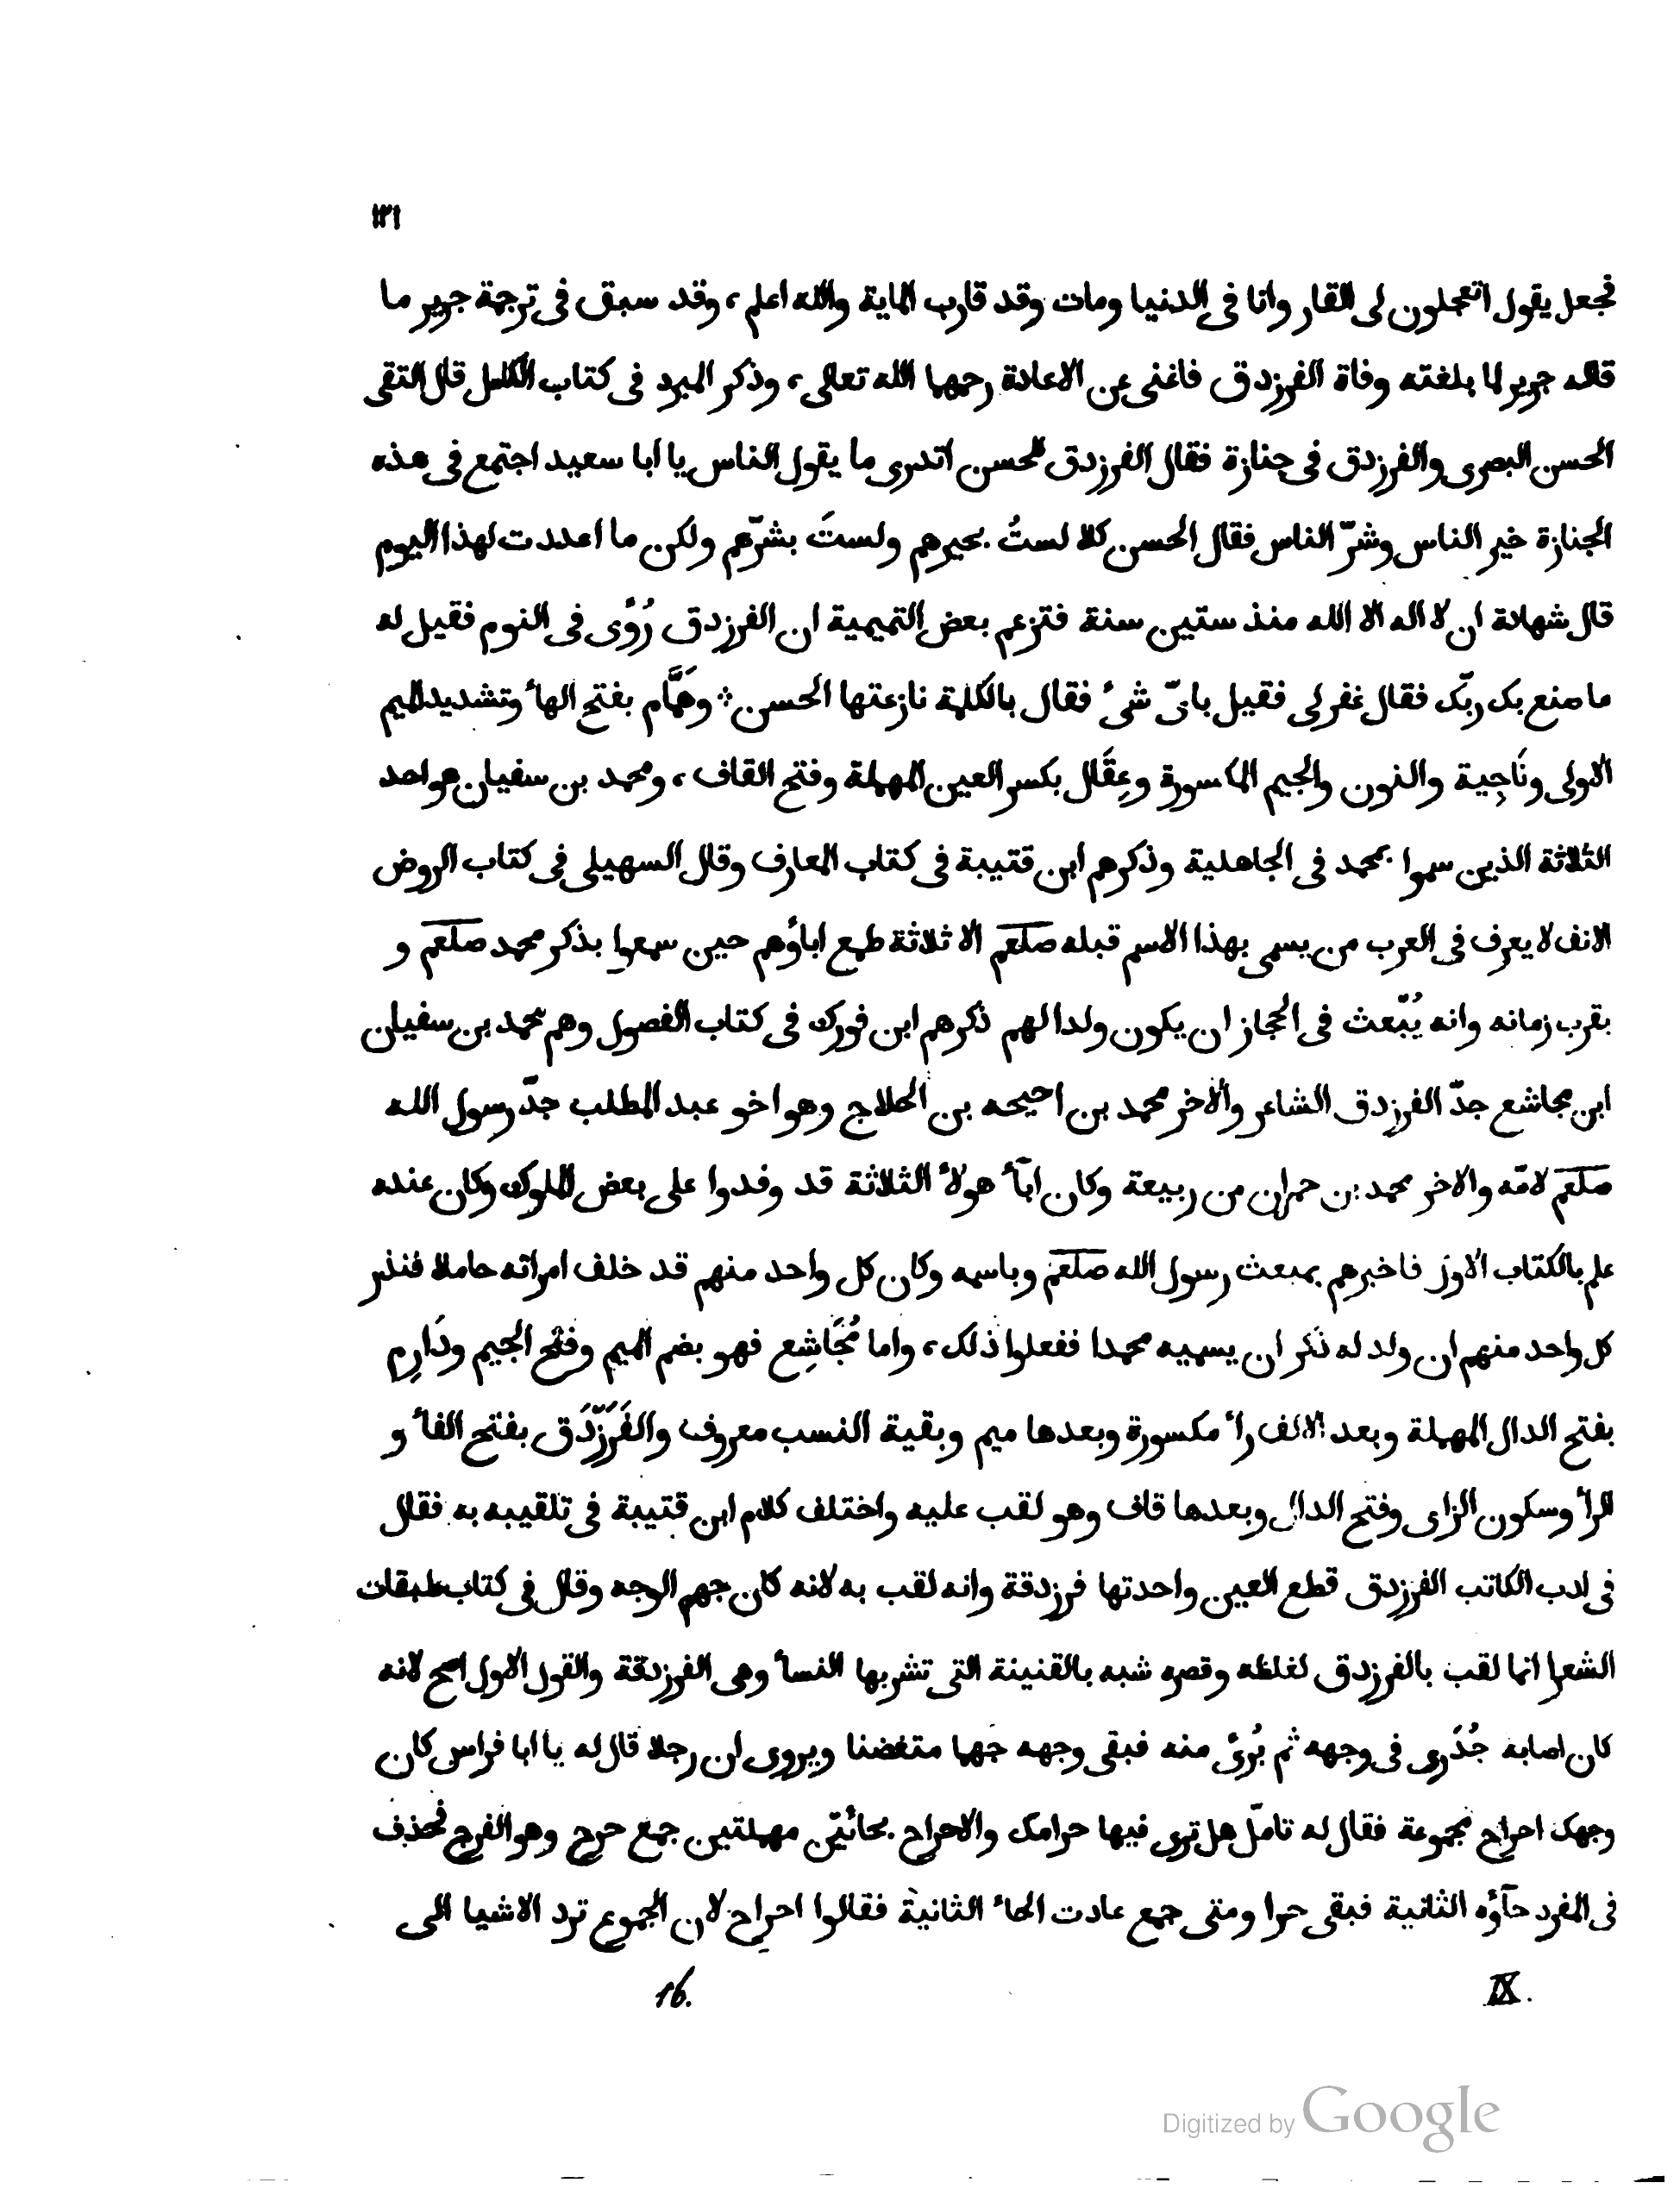 ١٢١
فجعل يقول اتعجلون لى القار وانا فى الدنيا ومات وقد قارب الماية والله اعلم، وقد سبق فى ترجمة جرير ما
قاله جرير لما بلغته وفاة الفرزدق فاغنى عن الاعادة رحمهما الله تعالى، وذكر المبرد فى كتاب الكامل قال التقى
الحسن البصرى والفرزدق فى جنازة فقال الفرزدق للحسن اتدرى ما يقول الناس يا ابا سعيد اجتمع فى هذه
الجنازة خير الناس وشرّ الناس فقال الحسن كلا لستُ بخيرهم ولستَ بشرّهم ولكن ما اعددت لهذا اليوم
قال شهادة ان لا اله الا الله منذ ستين سنة فتزعم بعض التميمية ان الفرزدق رُؤى فى النوم فقيل له
ما صنع بك ربّك فقال غفر لى فقيل باىّ شىء فقال بالكلمة نازعتها الحسن ⁘ وهَمَّام بفتح الهاء وتشديد الميم
الاولى ونَاجِية والنون والجيم المكسورة وعِقَال بكسر العين المهملة وفتح القاف، ومحمد بن سفيان هو احد
الثلاثة الذين سموا بمحمد فى الجاهلية وذكرهم ابن قتيبة فى كتاب المعارف وقال السهيلى فى كتاب الروض
الانف لا يعرف فى العرب من يسمى بهذا الاسم قبله صلعم الا ثلاثة طمع اباؤهم حين سمعوا بذكر محمد صلعم و
بقرب زمانه وانه يُبّعث فى الحجاز ان يكون ولدا لهم ذكرهم ابن فورك فى كتاب الفصول وهم محمد بن سفيان
ابن مجاشع جدّ الفرزدق الشاعر والاخر محمد بن احيحه بن الحلاج وهو اخو عبد المطلب جدّ رسول الله
صلعم لامّه والاخر محمد بن حمران من ربيعة وكان ابآء هولاء الثلاثة قد وفدوا على بعض الملوك وكان عنده
علم بالكتاب الاول فاخبرهم بمبعث رسول الله صلعم وباسمه وكان كل واحد منهم قد خلف امراته حاملا فنذر
كل واحد منهم ان ولد له ذكر ان يسميه محمدا ففعلوا ذلك، واما مُجَاشِع فهو بضم الميم وفتح الجيم ودَارِم
بفتح الدال المهملة وبعد الالف راء مكسورة وبعدها ميم وبقية النسب معروف والفَرَزّدَق بفتح الفاء و
الراء وسكون الزاى وفتح الدال وبعدها قاف وهو لقب عليه واختلف كلام ابن قتيبة فى تلقيبه به فقال
فى ادب الكاتب الفرزدق قطع العجين واحدتها فرزدقة وانه لقب به لانه كان جهم الوجه وقال فى كتاب طبقات
الشعرا انما لقب بالفرزدق لغلظه وقصره شبه بالقنينة التى تشربها النساء وهى الفرزدقة والقول الاول اصح لانه
كان اصابه جُدَرى فى وجهه ثم بُرئ منه فبقى وجهه جَهما متغضنا ويروى ان رجلا قال له يا ابا فراس كان
وجهك احراح مجموعة فقال له تامّل هل ترى فيها حرامك والاحراح بحائيّن مهملتين جمع حرح وهو الفرج فحذف
فى المفرد حآؤه الثانية فبقى حرا ومتى جمع عادت الحاء الثانية فقالوا احراح لان الجموع ترد الاشيا الى
IX. 16.
Digitized by Google